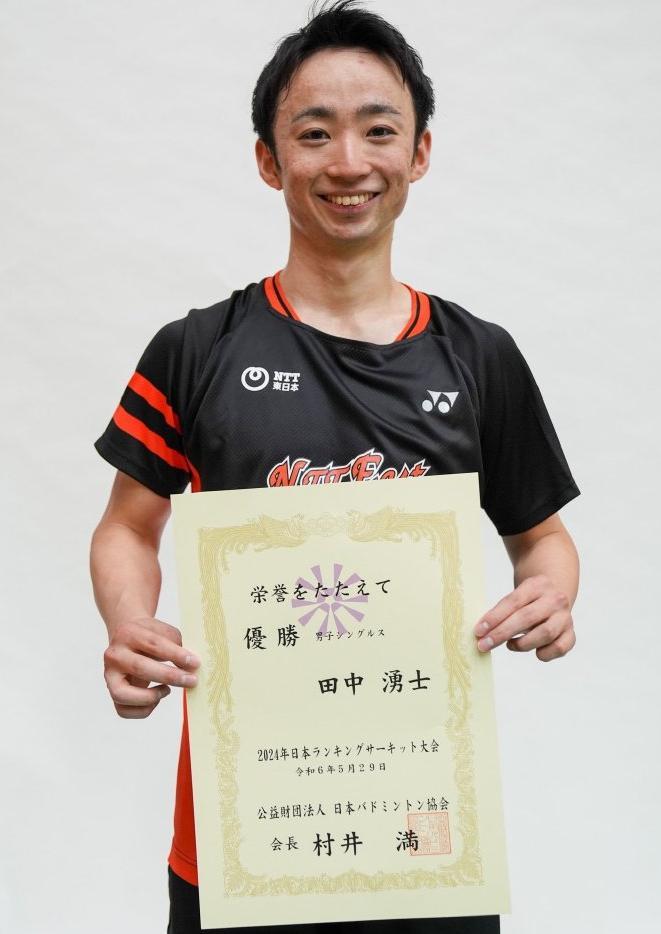 NTT
東日本
NTT East
栄誉をたたえて
優勝 男子シングルス
田中 湧士
2024年日本ランキングサーキット大会
令和6年5月29日
公益財団法人 日本バドミントン協会
会長 村井 満